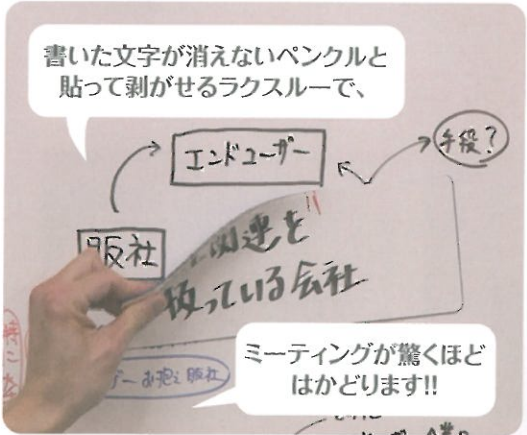 書いた文字が消えないペンクルと
貼って剥がせるラクスルーで、
手役?
エンドユーザー
販社
関連を
扱っている会社
ミーティングが驚くほど
はかどります!!